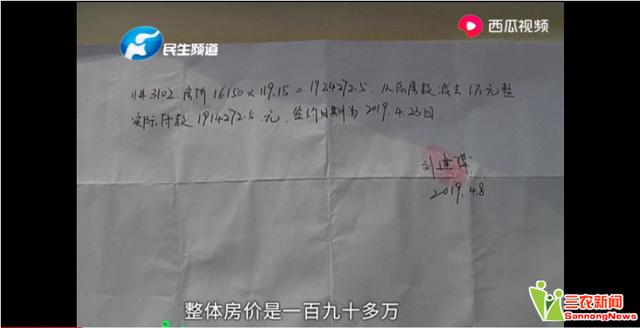 民生频道
西瓜视频
11#3102.房价16150×119.15=1924272.5.从总房款减去1万元整
实际付款1914272.5元.签约日期为2019.4.23日.
2019.4.8
整体房价是一百九十多万
三农新闻
SannongNews